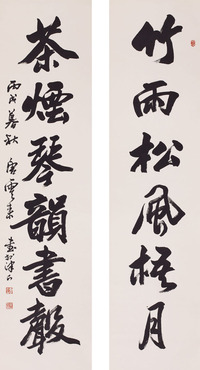 竹雨松風梧月
茶煙琴韻書聲
丙戌暮秋 唐雲來